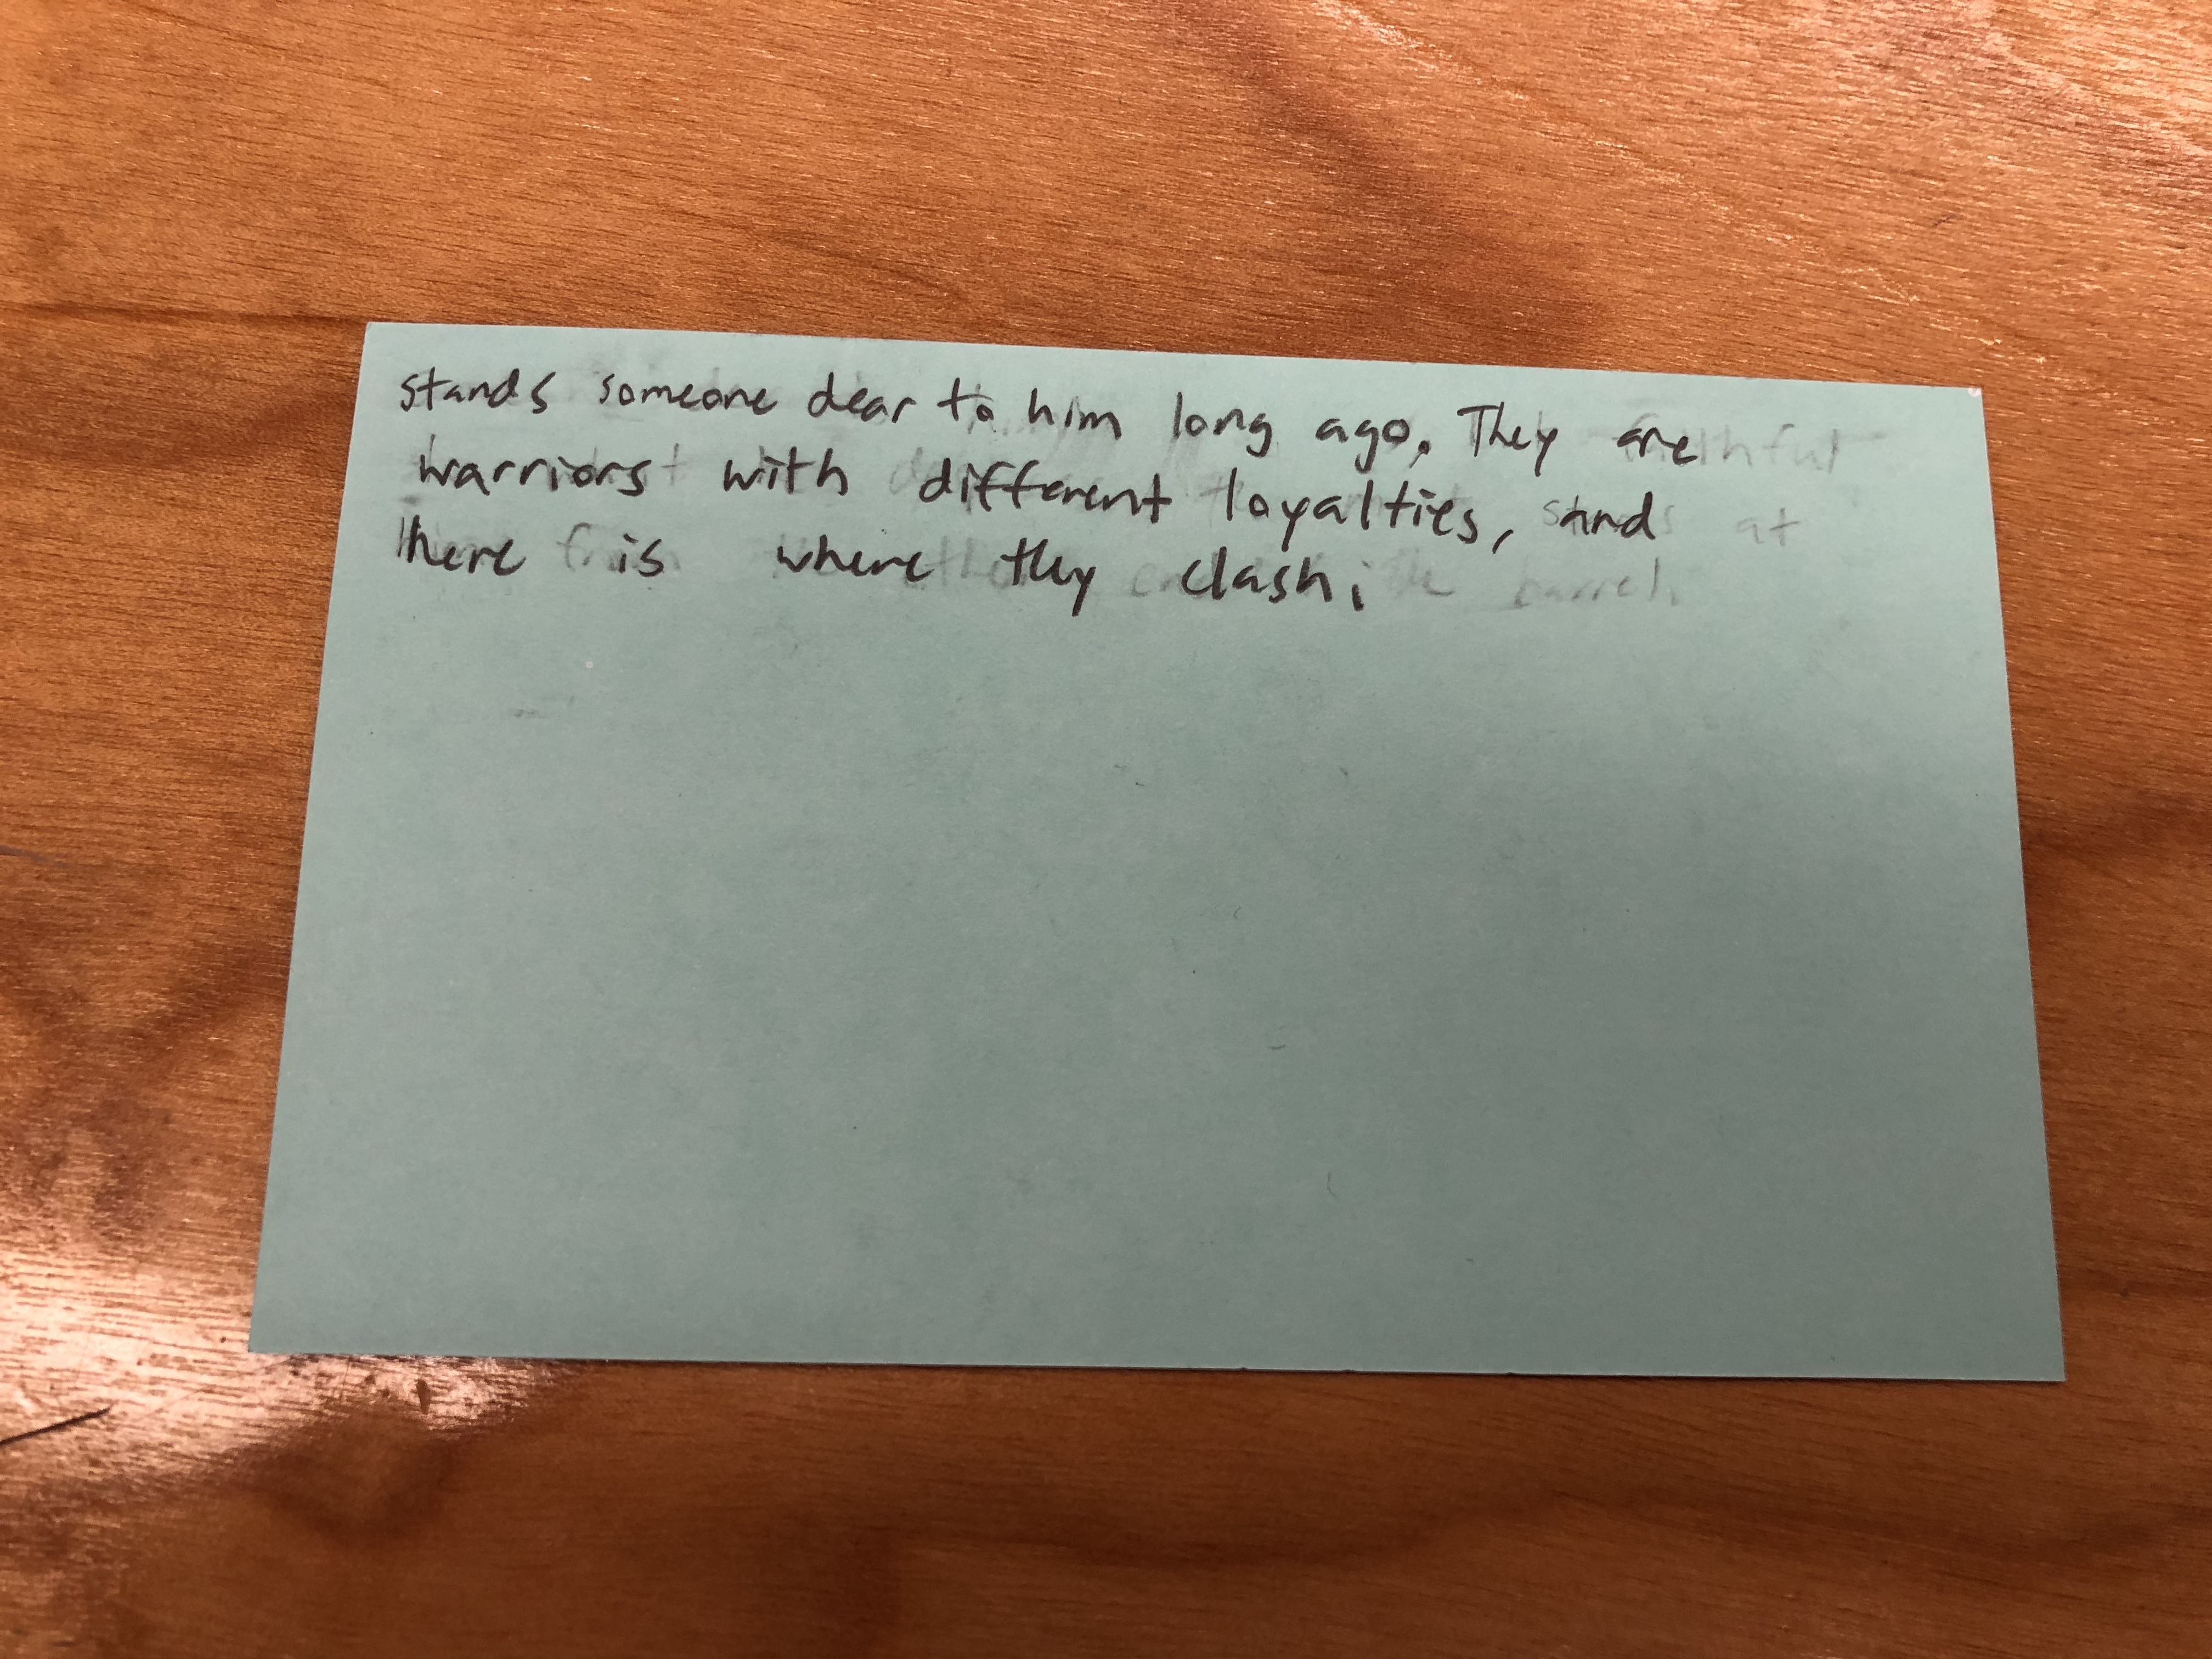 stands someone dear to him long ago. They are
warriors with different loyalties, and
here is where they clash.